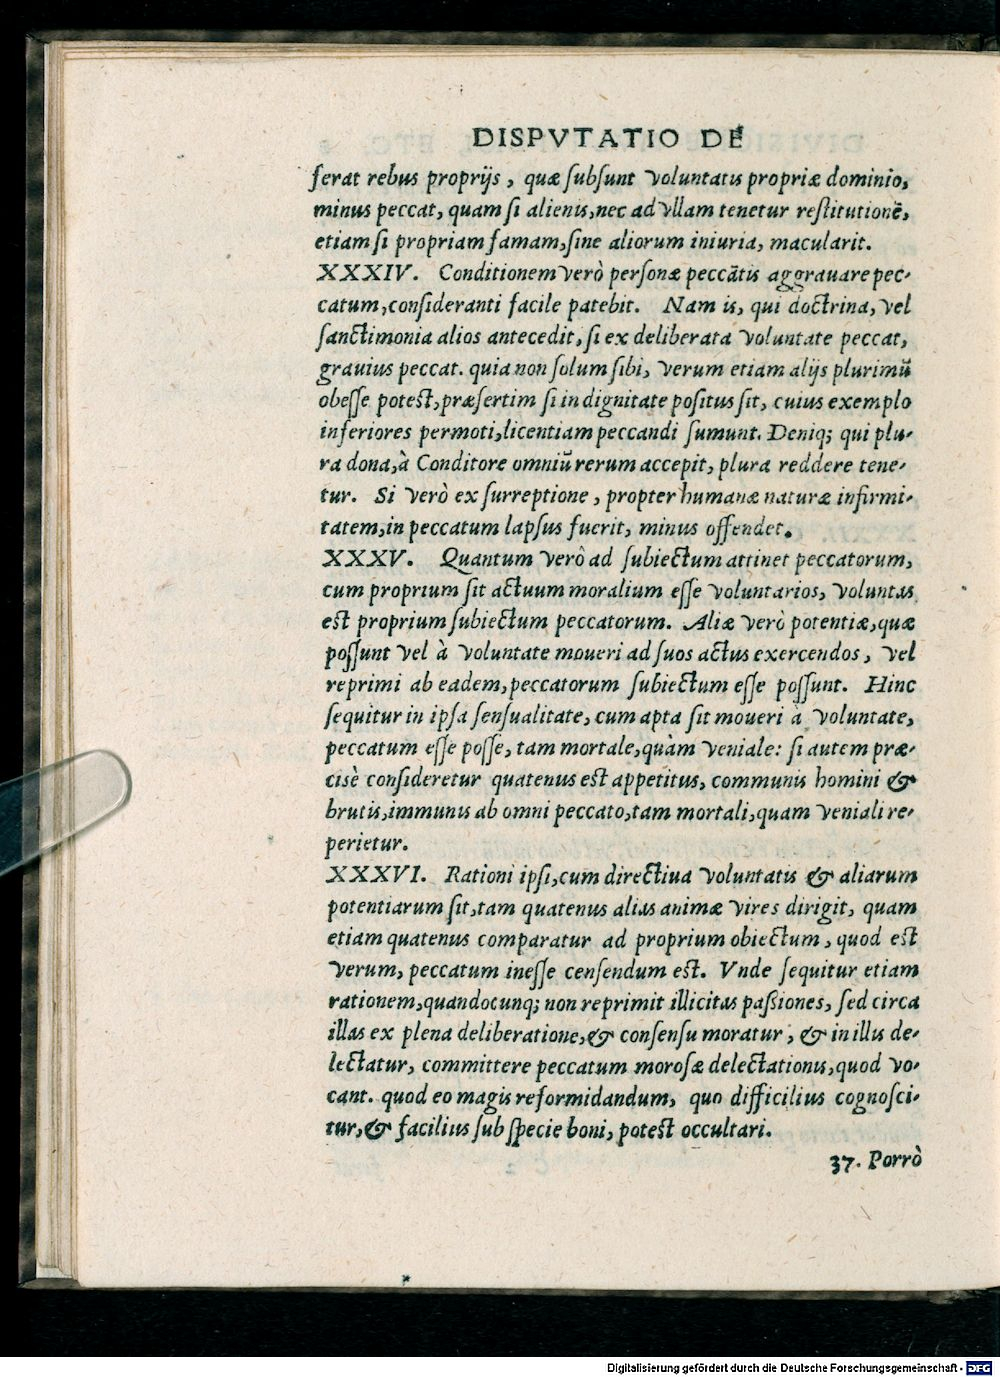 DISPVTATIO DE
ferat rebus proprijs, quæ subsunt voluntatis propriæ dominio,
minus peccat, quam si alienis, nec ad vllam tenetur restitutionē,
etiam si propriam famam, sine aliorum iniuria, macularit.
XXXIV. Conditionem verò personæ peccātis aggrauare pec-
catum, consideranti facile patebit. Nam is, qui doctrina, vel
sanctimonia alios antecedit, si ex deliberata voluntate peccat,
grauius peccat. quia non solum sibi, verum etiam alijs plurimū
obesse potest, præsertim si in dignitate positus sit, cuius exemplo
inferiores permoti, licentiam peccandi sumunt. Deniq; qui plu-
ra dona, à Conditore omniū rerum accepit, plura reddere tene-
tur. Si verò ex surreptione, propter humanæ naturæ infirmi-
tatem, in peccatum lapsus fuerit, minus offendet.
XXXV. Quantum verò ad subiectum attinet peccatorum,
cum proprium sit actuum moralium esse voluntarios, voluntas
est proprium subiectum peccatorum. Aliæ verò potentiæ, quæ
possunt vel à voluntate moueri ad suos actus exercendos, vel
reprimi ab eadem, peccatorum subiectum esse possunt. Hinc
sequitur in ipsa sensualitate, cum apta sit moueri à voluntate,
peccatum esse posse, tam mortale, quàm veniale: si autem præ-
cisè consideretur quatenus est appetitus, communis homini &
brutis, immunis ab omni peccato, tam mortali, quam veniali re-
perietur.
XXXVI. Rationi ipsi, cum directiua voluntatis & aliarum
potentiarum sit, tam quatenus alias animæ vires dirigit, quam
etiam quatenus comparatur ad proprium obiectum, quod est
verum, peccatum inesse censendum est. Vnde sequitur etiam
rationem, quandocunq; non reprimit illicitas passiones, sed circa
illas ex plena deliberatione, & consensu moratur, & in illis de-
lectatur, committere peccatum morosæ delectationis, quod vo-
cant. quod eo magis reformidandum, quo difficilius cognosci-
tur, & facilius sub specie boni, potest occultari.
37. Porrò
Digitalisierung gefördert durch die Deutsche Forschungsgemeinschaft - DFG